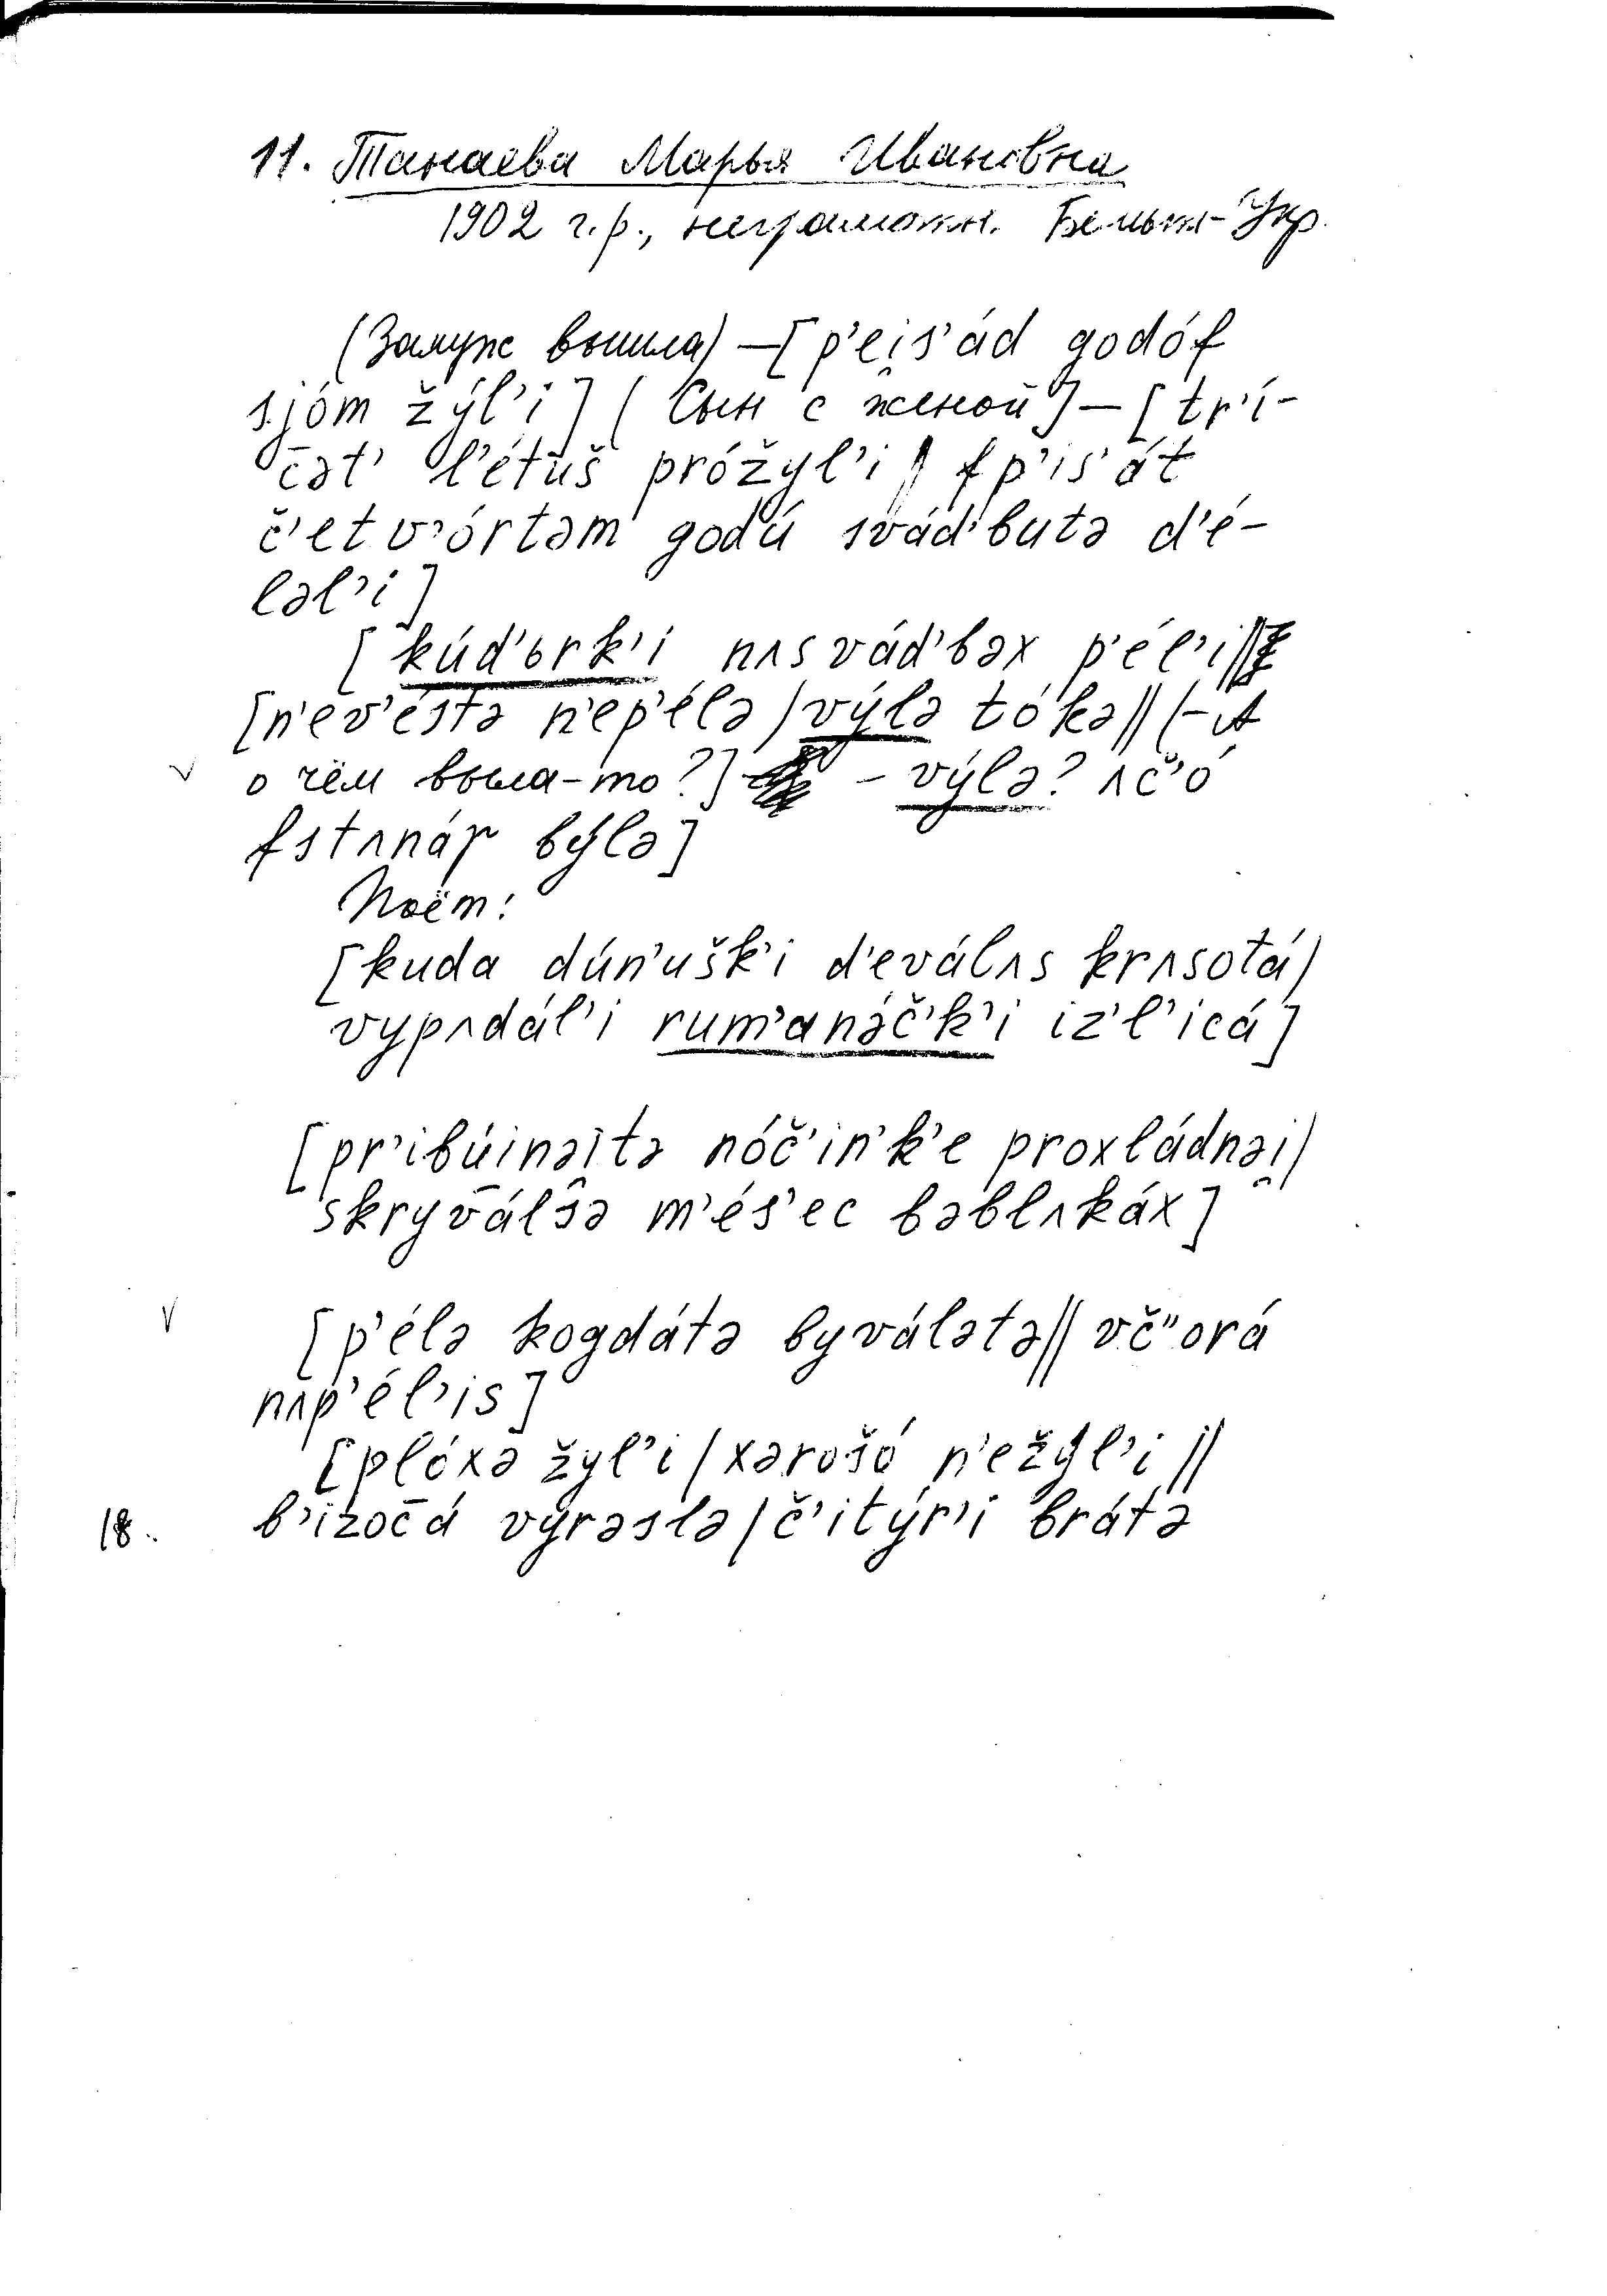 11. Танаева Марья Ивановна
1902 г.р., неграмотн. Бельт-Укр.
(Замуж вышла) – [p'ei̯s'ád godóf
sjóm žýl'i] (Сын с женой) – [tr'í-
c̄ət' l'étuš próžyl'i | fp'is'át
č'etv'órtəm godú svád'butə d'é-
ləl'i]
[kúd'ərk'i nʌsvád'bəx p'él'i||
[n'ev'éstə n'ep'élə / výlə tókə|| (– А
v о чём выла-то?] – výlə? ʌč'ó
fstʌnár býlə]
Поём:
[kuda dún'ušk'i d'eválʌs krʌsotá/
vypʌdál'i rum'anə́č'k'i iz'l'icá]
[pr'ibúinəi̯tə nóč'in'k'e proxládnəi̯/
skryválsə m'és'ec bəblʌkáx]
v [p'élə kogdátə byválətə|| vč"orá
nʌp'él'is]
[plóxə žyl'i / xərošó n'ežýl'i ||
18. b'izoc̄á výrəslə / č'itýr'i brátə